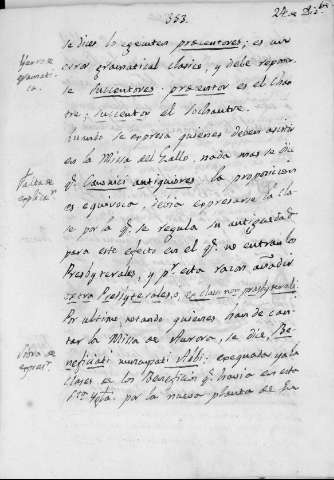 353.
24 de Dizbre
Yerro de
gramati-
ca.
se dice lo egecuten præcentores; es un
error gramatical clasico, y debe repone
se Succentores. præcentor es el Chan
tre; Succentor el Sochantre.
Quando se expresa quienes deven asistir
en la Missa del Gallo, nada mas se dice
Falta de
explicacn
qe. Canonici antiquiores la proposicion
es equivoca, devia expresarse la cla
se por la qe. se regula su antiguedad
para este efecto en el qe. no entran los
Presbyterales, y pr. esta razon añadir
extra Presbyterales, o, ex clase non presbyterali.
Por ultimo notando quienes han de can
tar la Missa de Aurora, se dice, Be
neficiati nuncupati Albi: esequatos ya las
de expicn.
Clases de los Beneficios qe. havia en esta
Sta. Yga. por la nueva planta de ella